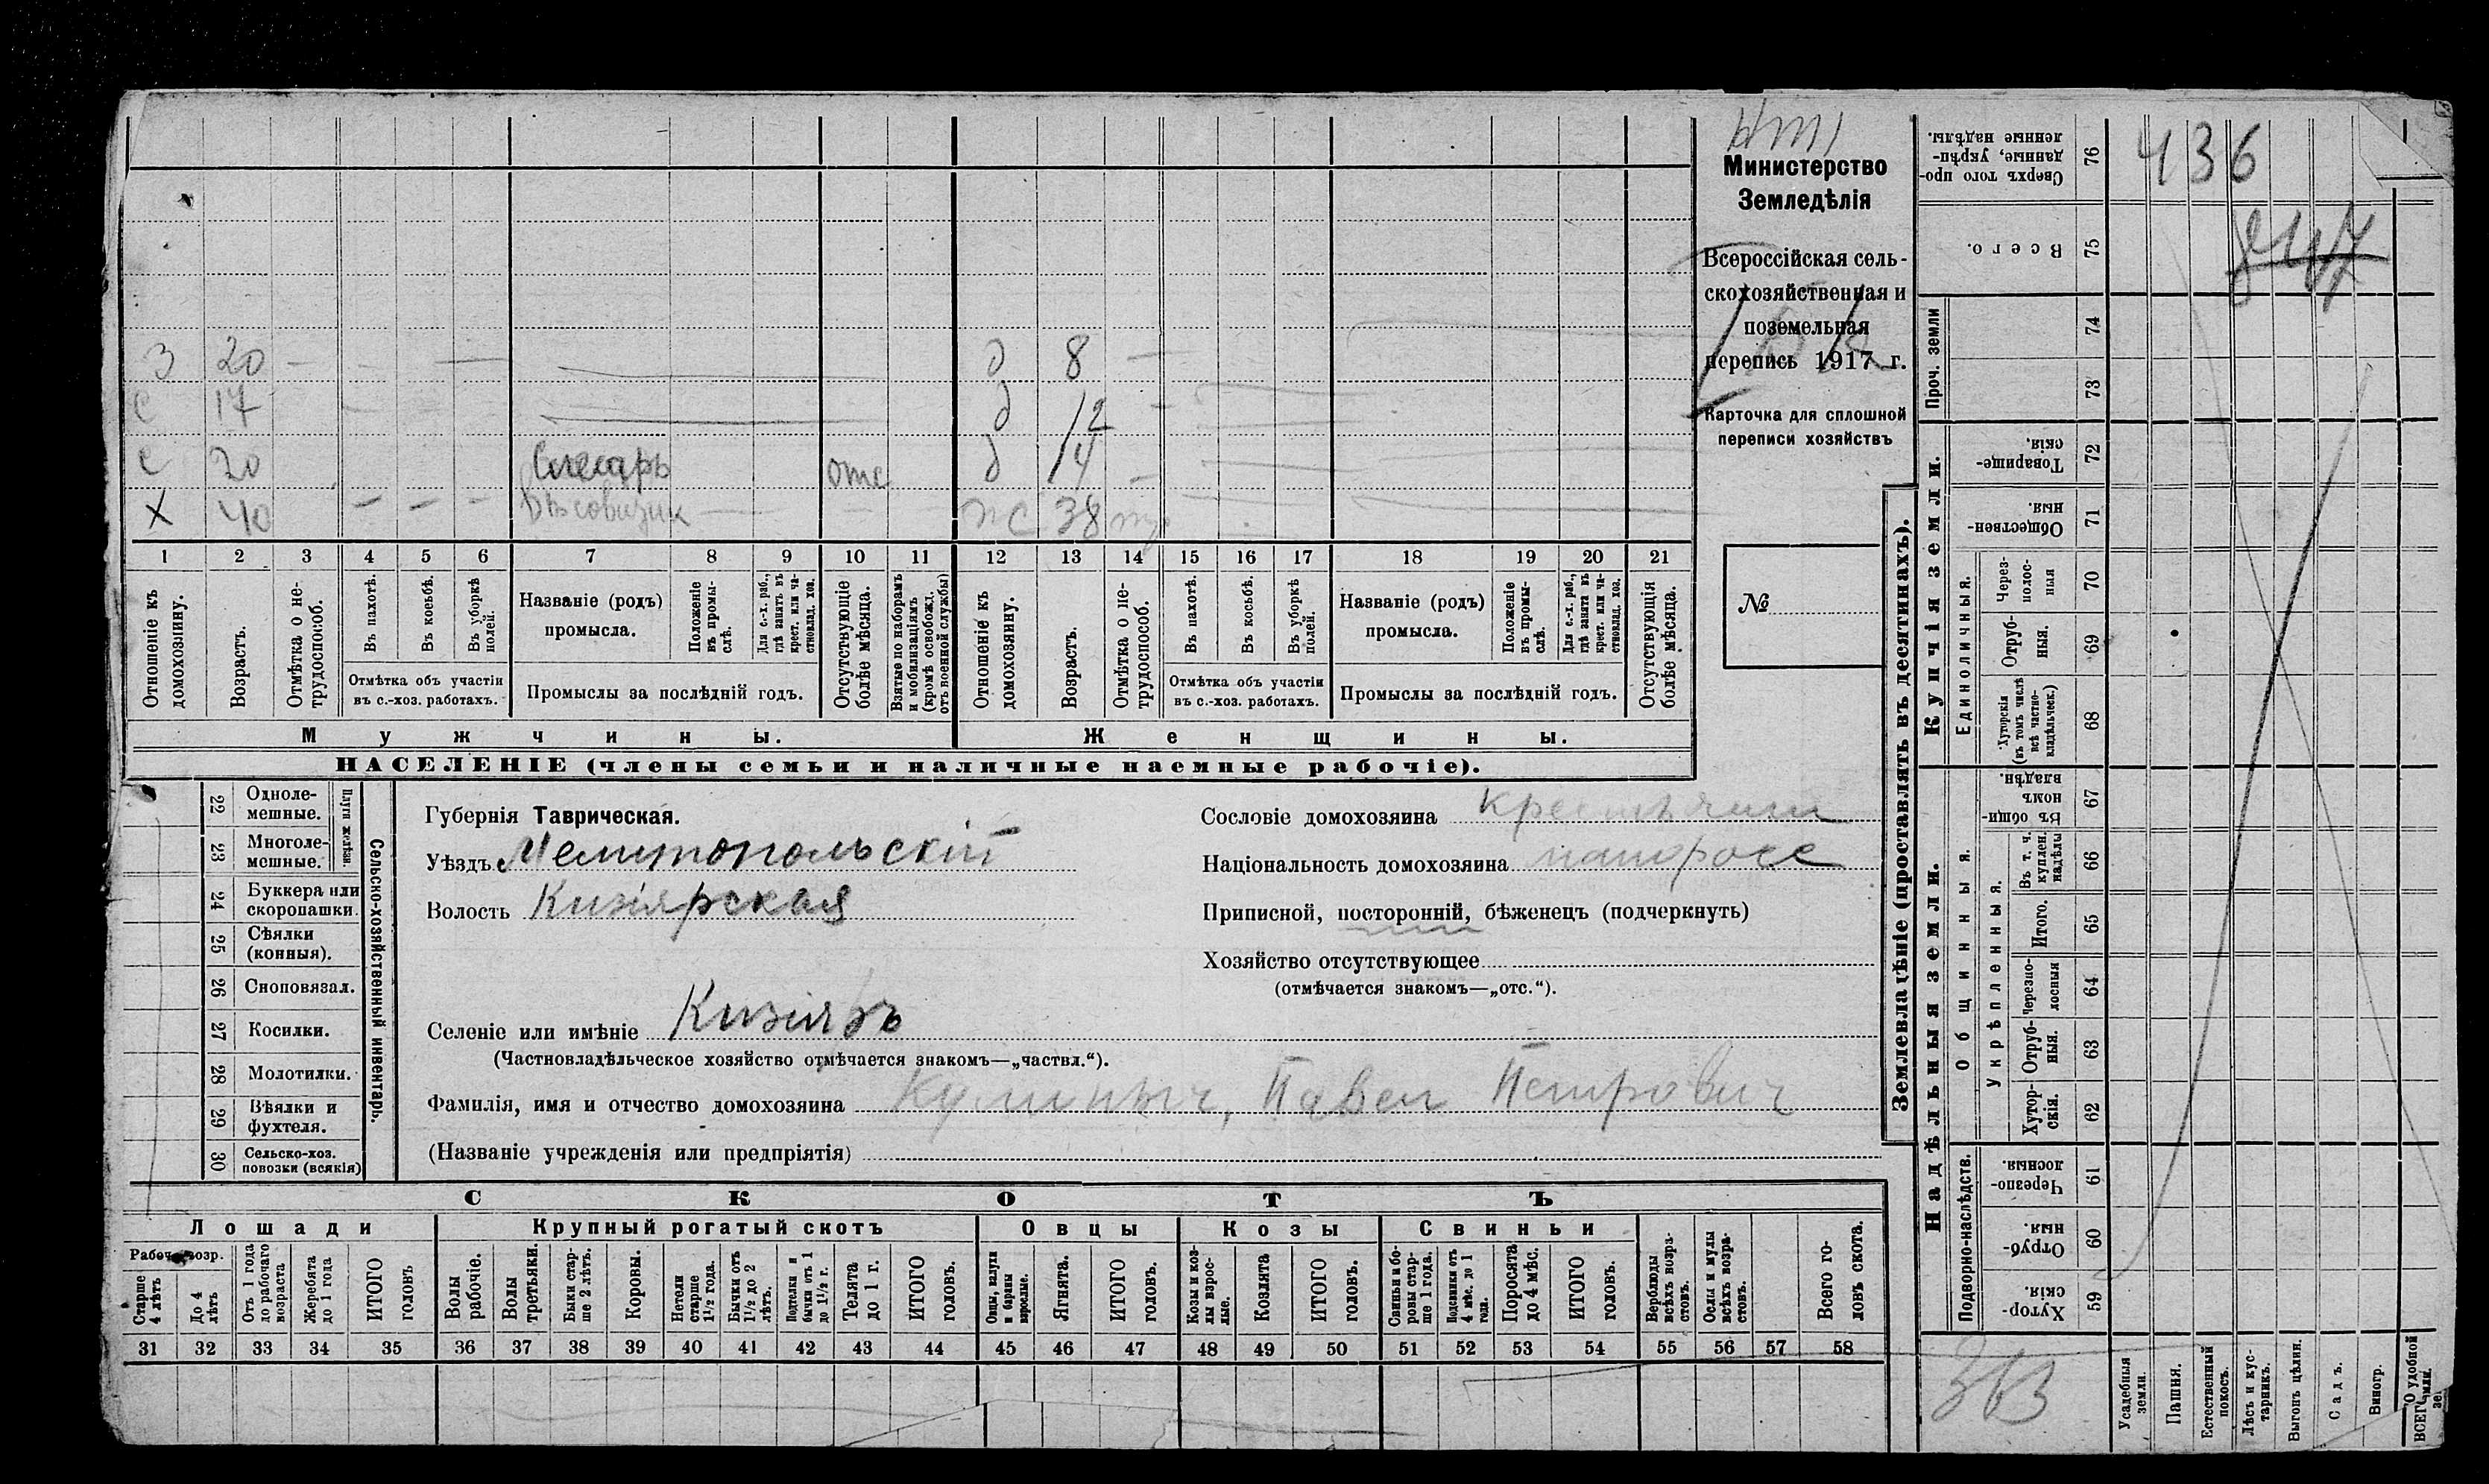 Министерство
Земледѣлія
Всероссійская сель-
скохозяйственная и
поземельная
перепись 1917 г.
Карточка для сплошной
переписи хозяйствъ
№
З 20 — — д 8 —
с 17 — д 12 —
с 20 Слесарь отс д 14 —
Х 40 — — — Вѣсовщик — — жс 38
1 2 3 4 5 6 7 8 9 10 11 12 13 14 15 16 17 18 19 20 21
Отношеніе къ домохозяину.
Возрастъ.
Отмѣтка о не-трудоспособ.
Въ пахотѣ.
Въ косьбѣ.
Въ уборкѣ полей.
Отмѣтка объ участіи
въ с.-хоз. работахъ.
Названіе (родъ)
промысла.
Положеніе въ промы-слѣ.
Для с.-х. раб., гдѣ занятъ въ крест. или ча-стновлад. хоз.
Промыслы за послѣдній годъ.
Отсутствующіе болѣе мѣсяца.
Взятые по наборамъ и мобилизаціямъ (кромѣ освобожд. отъ военной службы)
Отношеніе къ домохозяину.
Возрастъ.
Отмѣтка о не-трудоспособ.
Въ пахотѣ.
Въ косьбѣ.
Въ уборкѣ полей.
Отмѣтка объ участіи
въ с.-хоз. работахъ.
Названіе (родъ)
промысла.
Положеніе въ промы-слѣ.
Для с.-х. раб., гдѣ занята въ крест. или ча-стновлад. хоз.
Промыслы за послѣдній годъ.
Отсутствующія болѣе мѣсяца.
Мужчины. Женщины.
НАСЕЛЕНІЕ (члены семьи и наличные наемные рабочіе).
22 Одноле-мешные.
23 Многоле-мешные.
Плуги желѣзн.
24 Буккера или скоропашки.
25 Сѣялки (конныя).
26 Сноповязал.
27 Косилки.
28 Молотилки.
29 Вѣялки и фухтеля.
30 Сельско-хоз. повозки (всякія)
Сельско-хозяйственный инвентарь.
Губернія Таврическая.
Уѣздъ Мелитопольскій
Волость Кизіярская
Селеніе или имѣніе Кизіяръ
(Частновладѣльческое хозяйство отмѣчается знакомъ—„частвл.“).
Фамилія, имя и отчество домохозяина Кулиныч, Павел Петрович
(Названіе учрежденія или предпріятія)
Сословіе домохозяина крестьянин
Національность домохозяина малоросс
Приписной, посторонній, бѣженецъ (подчеркнуть)
Хозяйство отсутствующее
(отмѣчается знакомъ—„отс.“).
СКОТЪ
Лошади Крупный рогатый скотъ Овцы Козы Свиньи
Рабоч. возр.
Старше 4 лѣтъ
До 4 лѣтъ
Отъ 1 года до рабочаго возраста
Жеребята до 1 года
ИТОГО головъ
Волы рабочіе.
Волы третьяки.
Быки стар-ше 2 лѣтъ.
Коровы.
Нетели старше 1½ года.
Бычки отъ 1½ до 2 лѣтъ.
Подтелки и бычки отъ 1 до 1½ г.
Телята до 1 г.
ИТОГО головъ.
Овцы, валухи и бараны взрослые.
Ягнята.
ИТОГО головъ.
Козы и коз-лы взрос-лые.
Козлята
ИТОГО головъ.
Свиньи и бо-ровы стар-ше 1 года.
Подсвинки отъ 4 мѣс. до 1 года.
Поросята до 4 мѣс.
ИТОГО головъ.
Верблюды всѣхъ возра-стовъ.
Ослы и мулы всѣхъ возра-стовъ.
Всего го-ловъ скота.
31 32 33 34 35 36 37 38 39 40 41 42 43 44 45 46 47 48 49 50 51 52 53 54 55 56 57 58
Землевладѣніе (проставлять въ десятинахъ).
Купчія земли.
Надѣльныя земли.
436
76 Сверхъ того про-данные, укрѣп-ленные надѣлы.
75 Всего.
74
73
Проч. земли
72 Товарище-скія.
71 Обществен-ныя.
Единоличныя.
70 Через-полос-ныя
69 Отруб-ныя.
68 Хуторскія (въ томъ числѣ всѣ частно-владѣльческ.)
Общинныя.
67 Въ общин-номъ владѣн.
Укрѣпленныя.
66 Въ т. ч. куплен. надѣлы
65 Итого.
64 Черезпо-лосныя
63 Отруб-ныя.
62 Хутор-скія.
Подворно-наслѣдств.
61 Черезпо-лосныя.
60 Отруб-ныя.
59 Хутор-скія.
Усадебныя земли.
Пашня.
Естественный покосъ.
Лѣсъ и кус-тарникъ.
Выгонъ цѣлин.
Садъ.
Виногр.